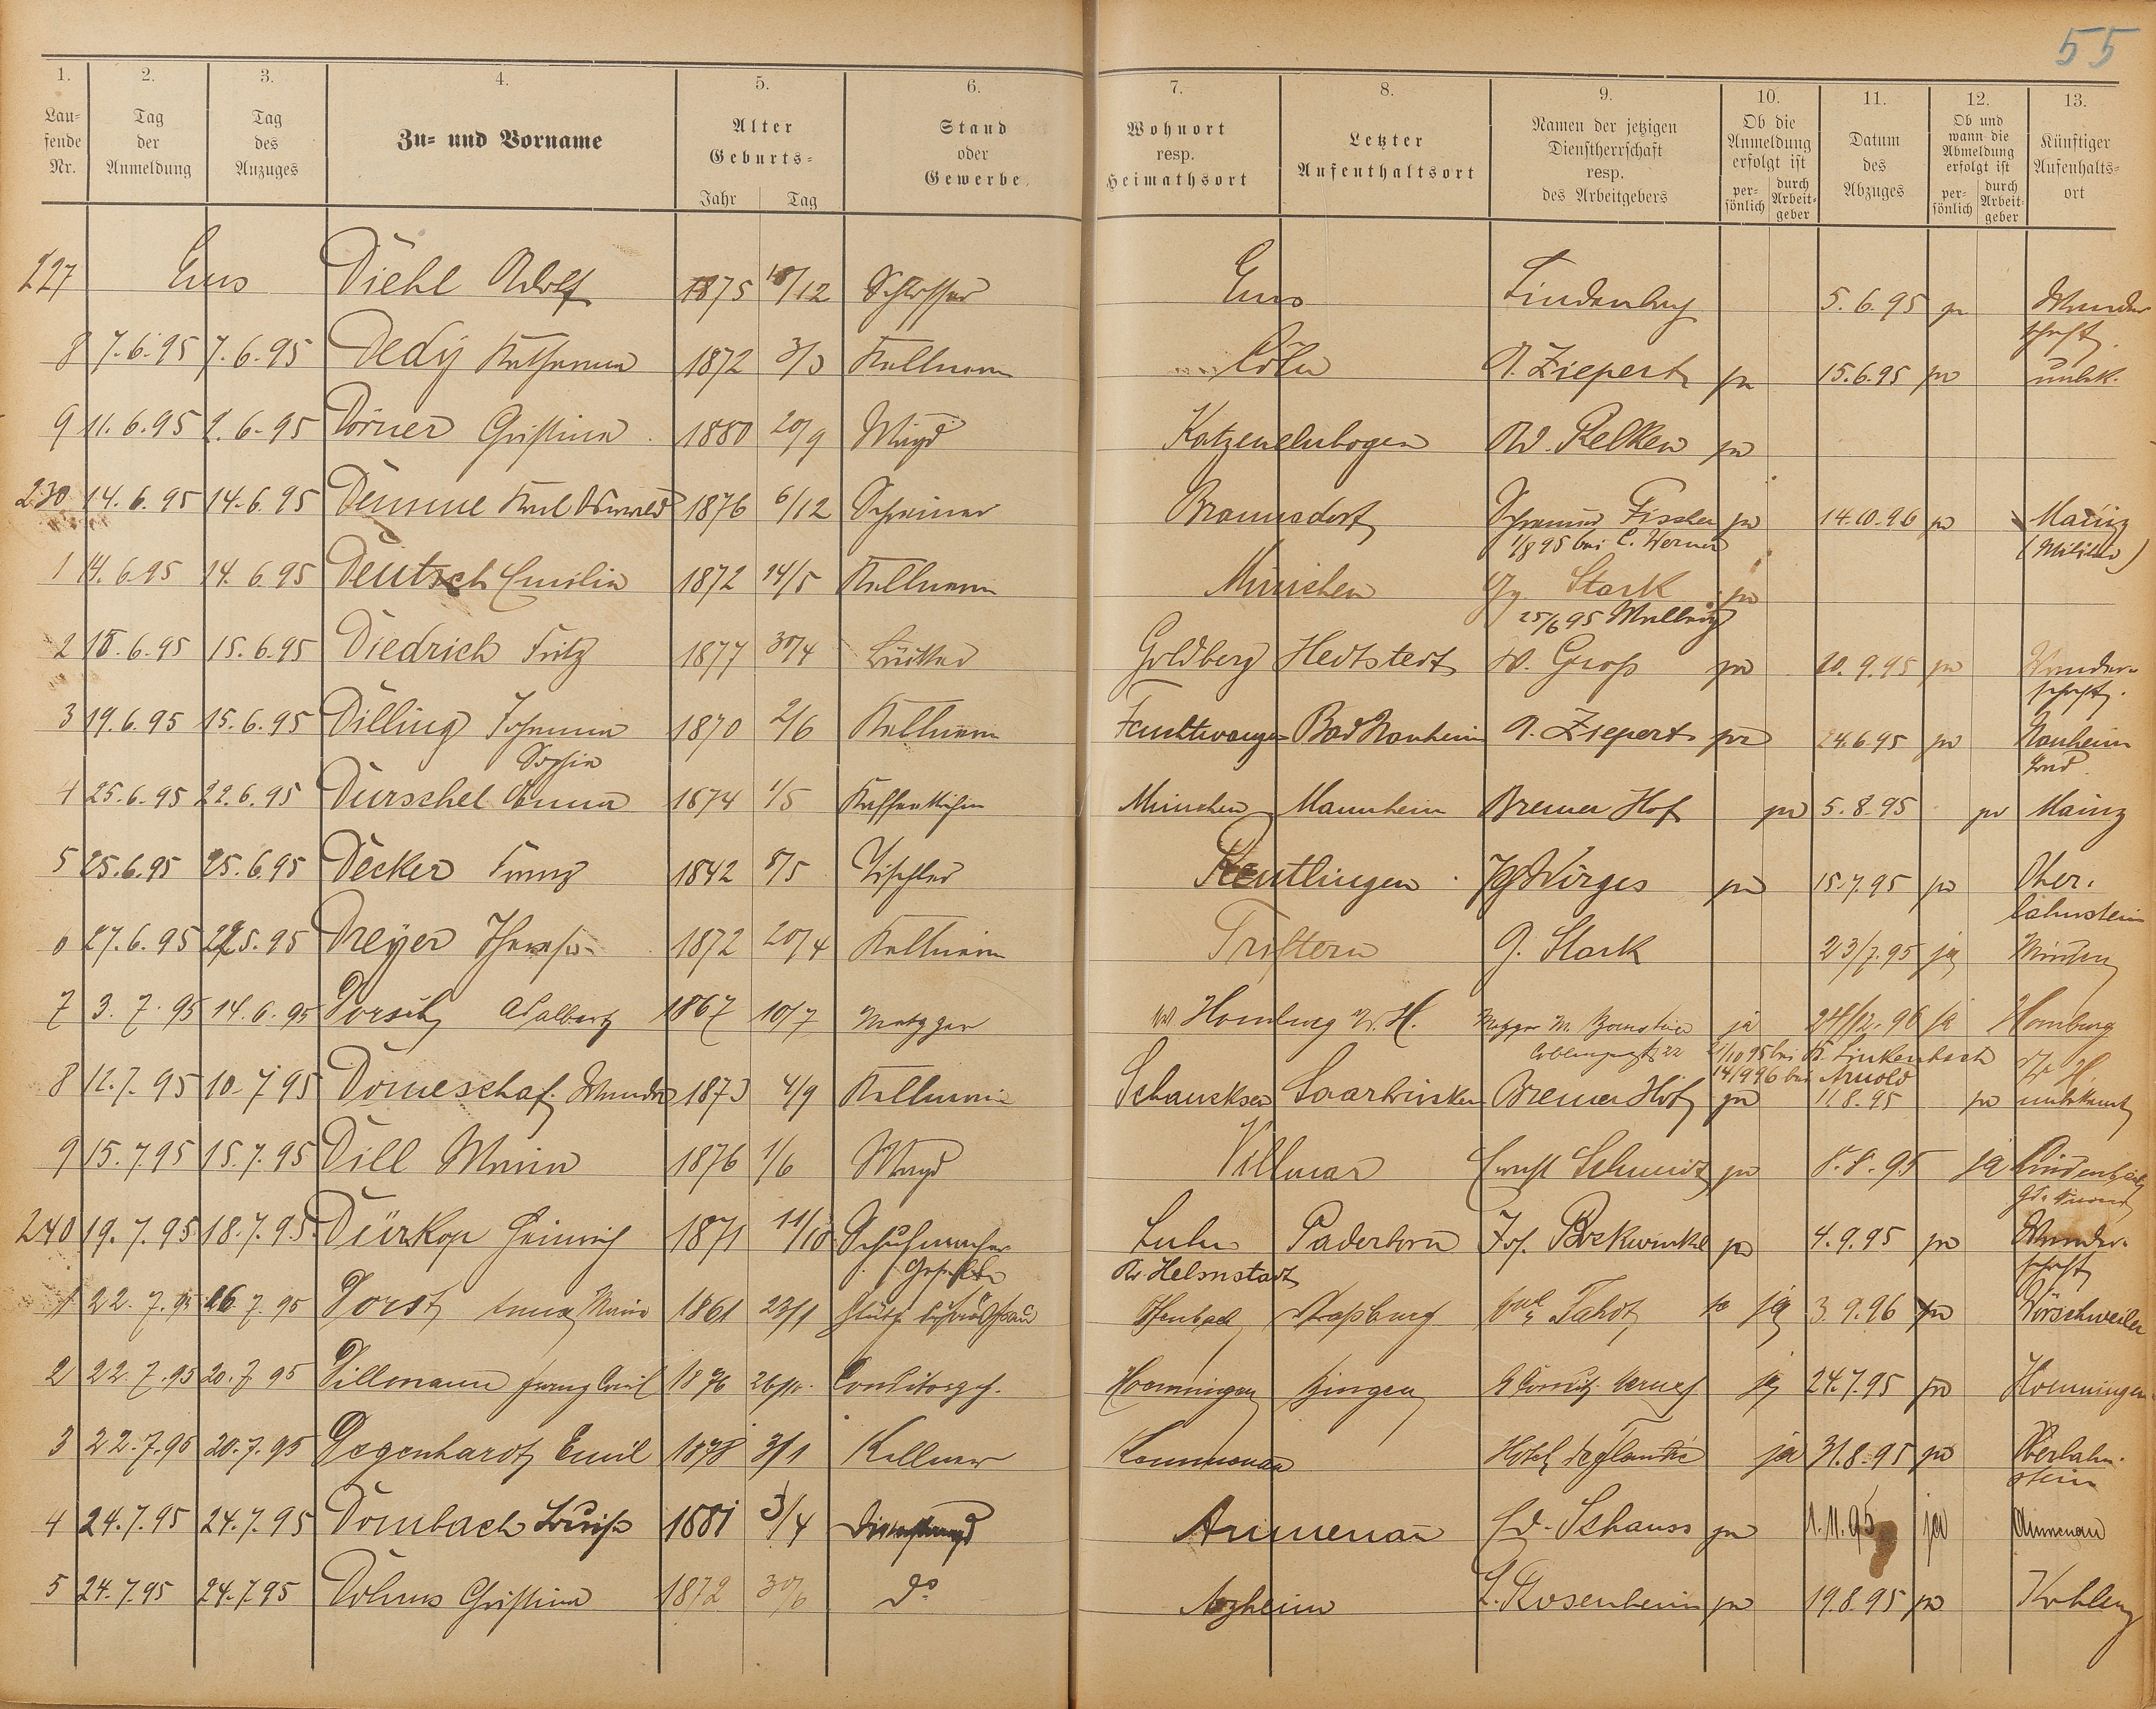 55
1. 2. 3. 4. 5. 6. 7. 8. 9. 10. 11. 12. 13.
Lau=
fende
Nr.
Tag
der
Anmeldung
Tag
des
Anzuges
Zu= und Vorname
Alter
Geburts=
Jahr Tag
Stand
oder
Gewerbe
Wohnort
resp.
Heimathsort
Letzter
Aufenthaltsort
Namen der jetzigen
Dienstherrschaft
resp.
des Arbeitgebers
Ob die
Anmeldung
erfolgt ist
per=
sönlich
durch
Arbeit=
geber
Datum
des
Abzuges
Ob und
wann die
Abmeldung
erfolgt ist
per=
sönlich
durch
Arbeit=
geber
Künftiger
Aufenthalts=
ort
227 Ems Diehl Adolf 1875 /12 Schlosser Ems Lindenbach 5.6.95 ja Wander
schaft.
8 7.6.95 7.6.95 Dedy Katharina 1872 3/3 Kellnerin Cöln A. Ziepert ja 15.6.95 ja unbk.
9 11.6.95 2.6.95 Dörner Christina 1880 20/9 Magd Katzenelnbogen Ad. Relken ja
230 14.6.95 14.6.95 Demme Karl Oswald 1876 6/12 Schreiner Braunsdorf Schreiner Fischer ja 14.10.96 ja Mainz
1/8 95 bei C. Werner (Militär)
1 14.6.95 14.6.95 Deutsch Emilie 1872 14/5 Kellnerin München Gg. Stark ja
25/6 95
2 18.6.95 15.6.95 Diedrich Fritz 1877 30/4 Goldberg Hedtstedt W. Groß ja 20.9.95 ja Wander-
schaft.
3 19.6.95 15.6.95 Dilling Johanna 1870 2/6 Kellnerin Feuchtwangen Bad Nauheim A. Ziepert ja 24.6.95 ja Nauheim
Sophie Bad
4 25.6.95 22.6.95 Dürschel Anna 1874 1/5 Kaffeeköchin München Mannheim Bremer Hof ja 5.8.95 ja Mainz
5 25.6.95 25.6.95 Decker Franz 1842 8/5 Tischler Reutlingen Wirges ja 15.7.95 ja Ober-
lahnstein
27.6.95 5.95 Dreyer Therese 1872 20/4 Kellnerin Triftern G. Stark 23/7.95 ja
7 3.7.95 14.6.95 Dorsch Adalbert 1867 10/7 Metzger Homburg v. H. Metzger M. Bernstein ja 24/12.96 ja Homburg
21/10 95 bei K. Linkenbach v. H.
14/9 96 bei Arnold
8 12.7.95 10.7.95 Domeschaf. Wanda 1873 4/9 Kellnerin Schaucksen Saarbrücken Bremer Hof ja 11.8.95 ja unbekannt
9 15.7.95 15.7.95 Dill Maria 1876 1/6 Magd Villmar Ernst Schmidt ja 8.8.95 ja Lindenbach
240 19.7.95 18.7.95 Dürkop Heinrich 1871 11/10 Schuhmacher Paderborn Jos. Bockwinkel ja 4.9.95 ja Wander-
Kr. Helmstadt schaft
1 22.7.95 26.7.95 Dorst Anna Maria 1861 23/1 Offenbach Straßburg ja 3.9.96 ja Börschweiler
2 22.7.95 20.7.95 Dillmann Franz Emil 1876 Conditorgeh. Hoenningen Bingen ja 24.7.95 ja Hoenningen
3 22.7.95 20.7.95 Degenhardt Emil 1878 3/1 Kellner Hotel de Flandre ja 31.8.95 ja Oberlahn-
stein
4 24.7.95 24.7.95 Dombach Louise 1881 3/4 Dienstmagd Aumenau Ed. Schauss ja 1.11.95 ja Aumenau
5 24.7.95 24.7.95 Dolmus Christina 1872 30/6 do Arzheim L. Rosenheim ja 19.8.95 ja Koblenz